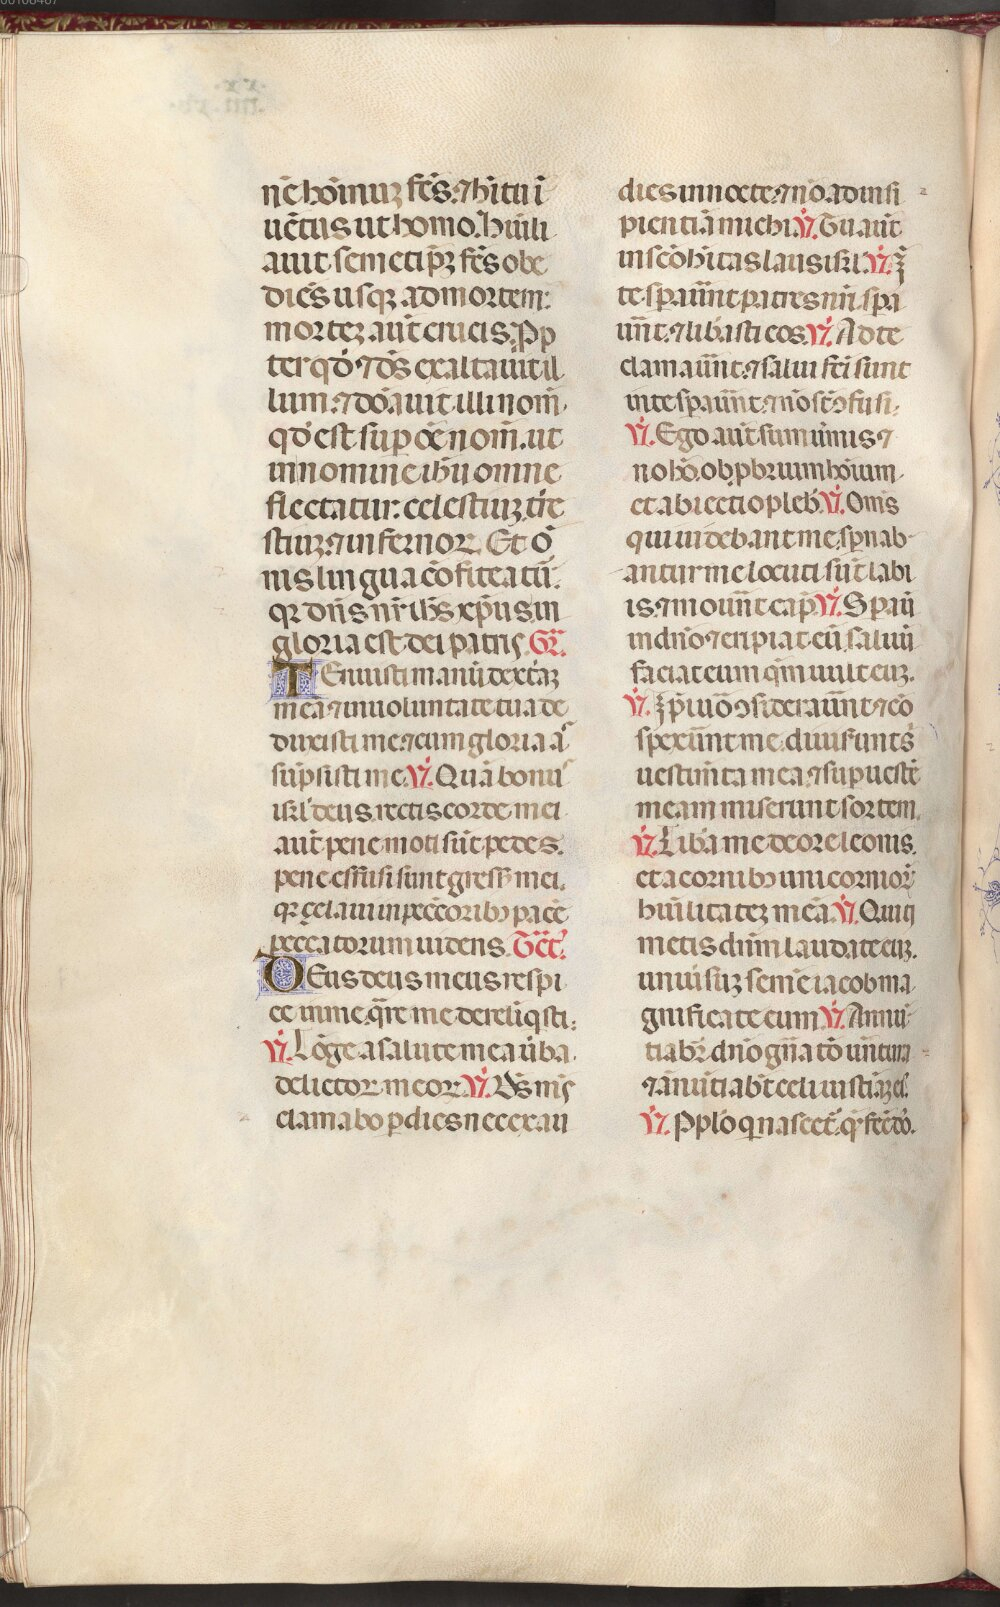 nē hoīnuꝫ fc̄s. ⁊ hitu ī
uētus ut homo. Hūili
auit semetip̄ꝫ fc̄s obe
diēs usqꝫ ad mortem:
morteꝫ aūt crucis. Pp
ter qđ ⁊ ds̄ exaltauit il
lum. ⁊ dōauit illi nom̄.
qđ est sup̄ oē nom̄. ut
in nomine ihū omne
flectatur. celestiuꝫ. tr̄e
stiuꝫ. ⁊ infernoꝝ. Et ō
nis lingua cōfiteatū.
qꝛ dn̄s nr̄ ihs̄ xp̄us. in
gloria est dei patris. Gr̄.
Tenuisti manū dext̄aꝫ
meā ⁊ in uoluntate tua de
duxisti me. ⁊ cum gloria as
sūpsisti me. V̄. Quā bonus
isrl̄ deus. rectis corde mei
aūt pene moti sūt pedes.
pene effusi sunt gress᷒ mei.
qꝛ çelaui in peccōribꝫ pacē
peccatorum uidens. Tc̄t.
Deus deus meus respi
ce in me. q̄re me dereliqsti:
V̄. Lōge a salute mea ūba
delictoꝝ meoꝝ. V̄. Ds̄ m̄s
clamabo p̄ dies nec exau
dies in nocte. ⁊ nō ad insi
pientiā michi. V̄. Tu aūt
in sc̄ō hitas laus isrl̄. V̄. ꝫ
te spauūnt patres nr̄i. spa
uūnt. ⁊ libasti eos. V̄. Ad te
clamauūnt. ⁊ salui fc̄i sunt
in te spauūnt. ⁊ nō st̄ ꝯfusi:
V̄. Ego aūt sum ūmis ⁊
no hō. obpbrium hoīum.
et abiectio plebis. V̄. Omīs
qui uidebant me. sp̄nab
antur me locuti sūt labi
is. ⁊ mouūnt cap̄. V̄. Spauī
in dn̄o ⁊ eripiat eū. saluū
faciat eum qm̄ uult euꝫ.
V̄. ꝫp̄i uō ꝯsiderauūnt ⁊ cō
spexūnt me. diuis̄unt s̄
uestim̄ta mea. ⁊ sup uestē
meam miserunt sortem.
V̄. Liba me de ore leonis.
et a cornibꝫ unicornioꝝ
hūilitateꝫ meā. V̄. Qui ti
metis dn̄m laudate euꝫ.
uniūsuꝫ semē iacob ma
gnificate eum. V̄. Annū
tiabr̄ dn̄o gn̄atō uentura
⁊ ānūtiabt̄ celi iustiāꝫ eius.
V̄. Pplō q nascet̄. qꝫ fec̄ dō.